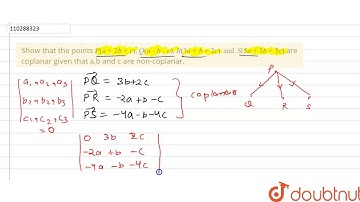 110288323
Show that the points P(a + 2b + c), Q(a - b - c), R(3a + b + 2c) and S(5a + 3b + 5c) are
coplanar given that a,b and c are non-coplanar.
a₁ + a₂ + a₃
b₁ + b₂ + b₃
c₁ + c₂ + c₃
= 0
PQ = 3b + 2c
PR = -2a + b - c
PS = -4a - b - 4c
coplanar
P
Q R S
0 3b 2c
-2a + b - c
-4a - b - 4c
doubtnut